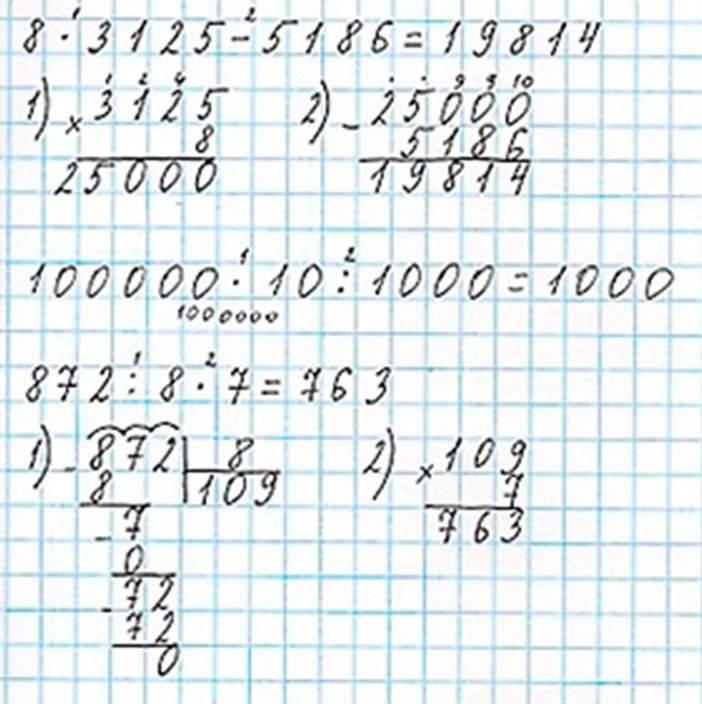 8 · 3125 - 5186 = 19814
1) × 3125
8
25000
2) - 25000
5186
19814
100000 · 10 : 1000 = 1000
1000000
872 : 8 · 7 = 763
1) - 872 | 8
8 109
- 7
0
- 72
72
0
2) × 109
7
763